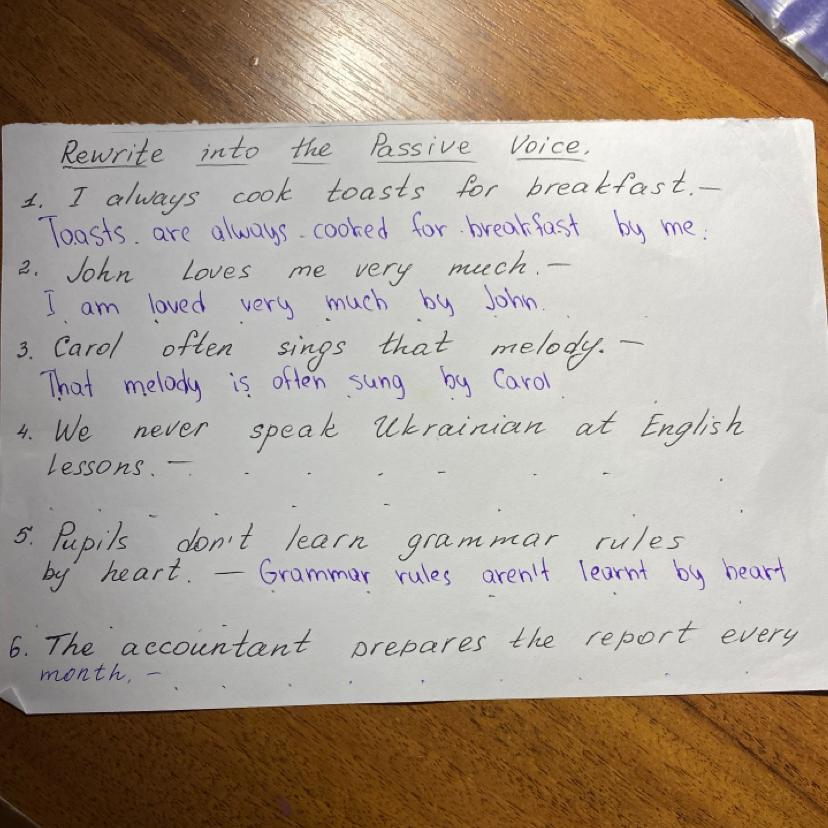 Rewrite into the Passive Voice.
1. I always cook toasts for breakfast. —
Toasts are always cooked for breakfast by me.
2. John Loves me very much. —
I am loved very much by John.
3. Carol often sings that melody. —
That melody is often sung by Carol
4. We never speak Ukrainian at English
Lessons. —
5. Pupils don't learn grammar rules
by heart. — Grammar rules aren't learnt by heart
6. The accountant prepares the report every
month. —